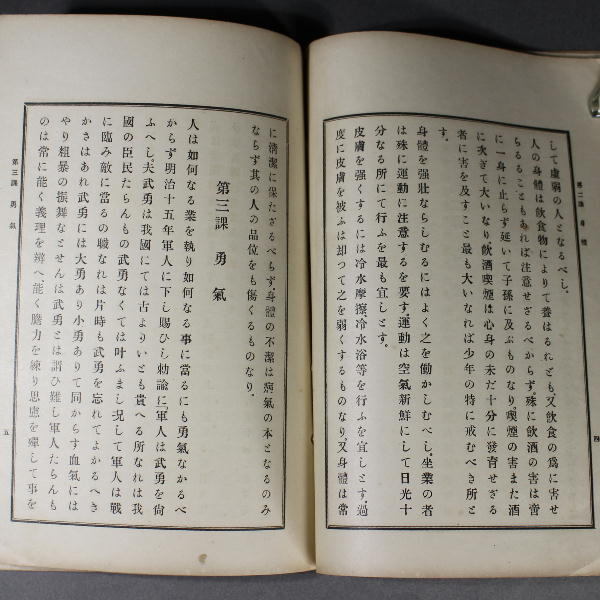 第二課 身體
して虛弱の人となるべし。
人の身體は飮食物によりて養はるれども、又飮食の爲に害せ
らるることもあれば注意せざるべからず。殊に飮酒の害は啻
に一身に止らず延いて子孫に及ぶものなり。喫煙の害また酒
に次ぎて大いなり。飮酒喫煙は心身の未だ十分に發育せざる
者に害を及すこと最も大いなれば少年の特に戒むべき所と
す。
身體を强壯ならしむるにはよく之を働かしむべし。坐業の者
は殊に運動に注意するを要す。運動は空氣新鮮にして日光十
分なる所にて行ふを最も宜しとす。
皮膚を强くするには冷水摩擦、冷水浴等を行ふを宜しとす。過
度に皮膚を被ふは却つて之を弱くするものなり。又身體は常
四
に淸潔に保たざるべらず。身體の不潔は病氣の本となるのみ
ならず其の人の品位をも傷くるものなり。
第三課 勇氣
人は如何なる業を執り如何なる事に當るにも勇氣なかるべ
からず。明治十五年軍人に下し賜ひし勅諭に「軍人は武勇を尙
ふへし。夫武勇は我國にては古よりいとも貴へる所なれは我
國の臣民たらんもの武勇なくては叶ふまし。況して軍人は戰
に臨み敵に當るの職なれは片時も武勇を忘れてよかるへき
かさはあれ武勇には大勇あり小勇ありて同からす。血氣には
やり粗暴の振舞なとせんは武勇とは謂ひ難し。軍人たらんも
のは常に能く義理を辨へ能く膽力を練り思慮を殫して事を
第三課 勇氣
五